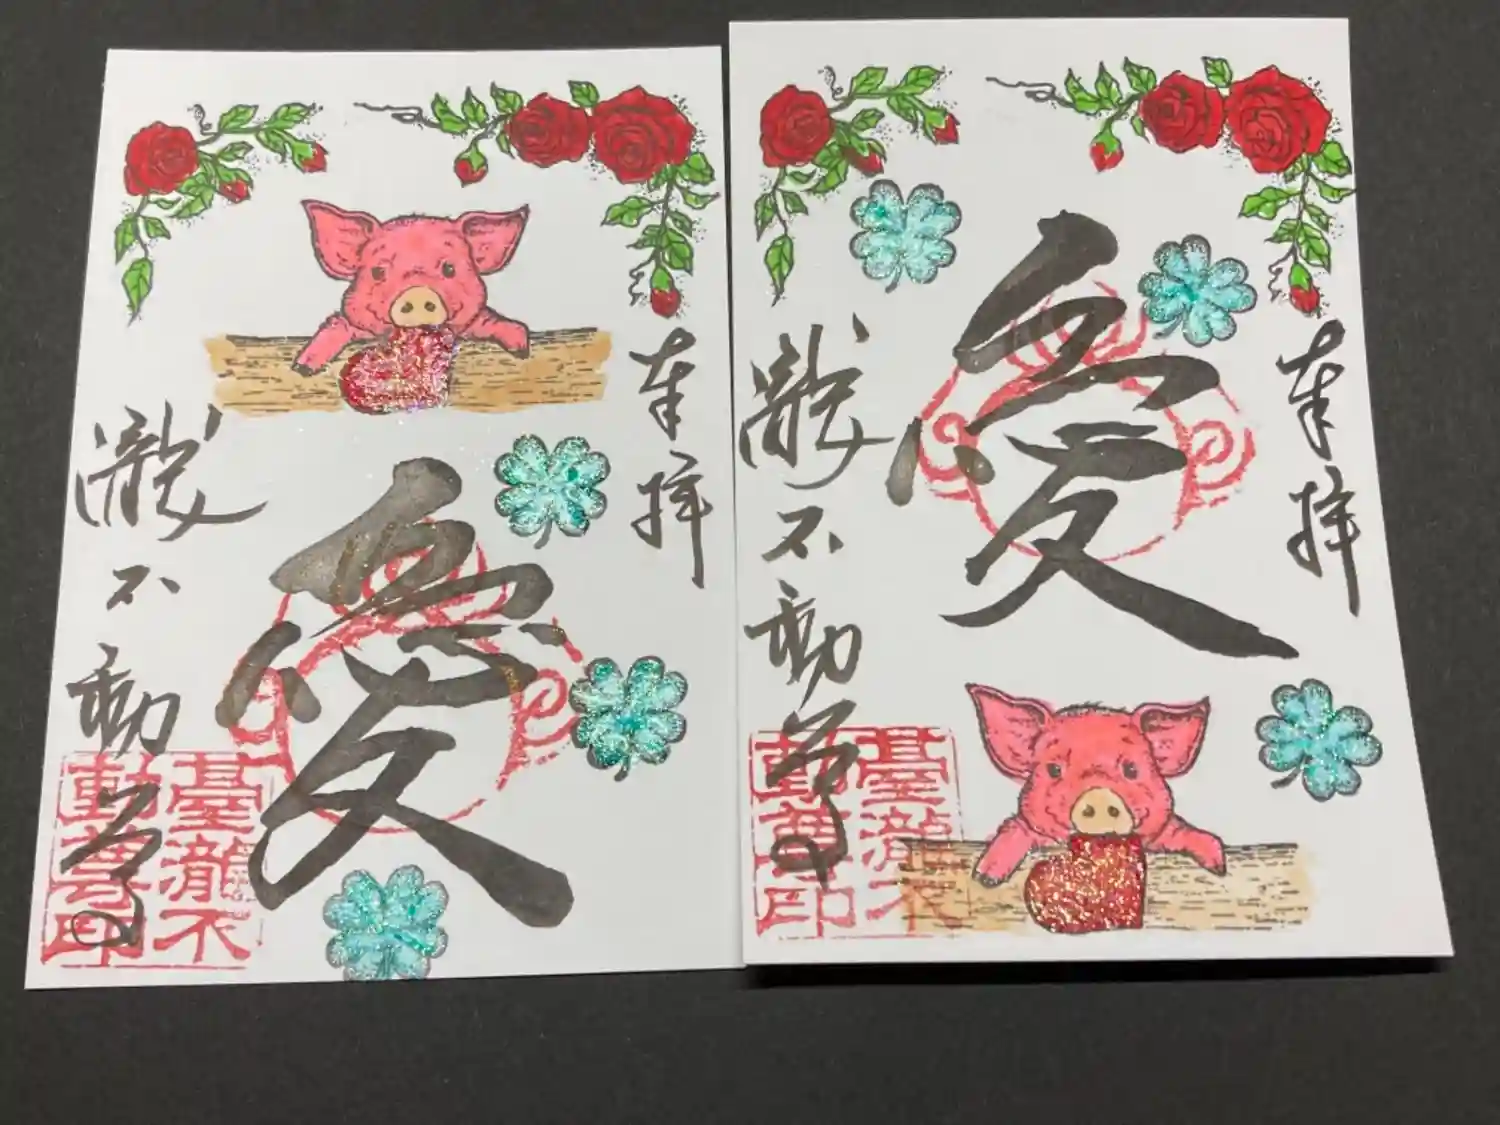 奉拝
愛
瀧不動尊
臺瀧不
動尊印
奉拝
愛
瀧不動尊
臺瀧不
動尊印